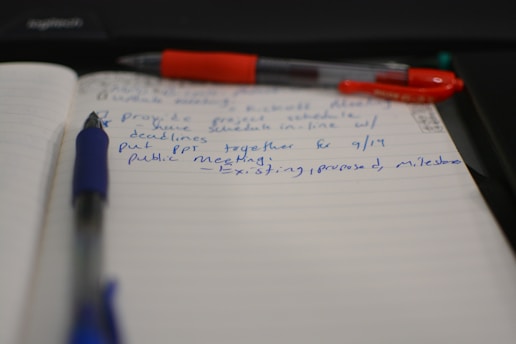 logitech
update meeting
Kickoff Meeting
provide project schedule
- have schedule in-line w/
deadlines
put PPT together for 9/19
public meeting.
- Existing, proposed, milestone